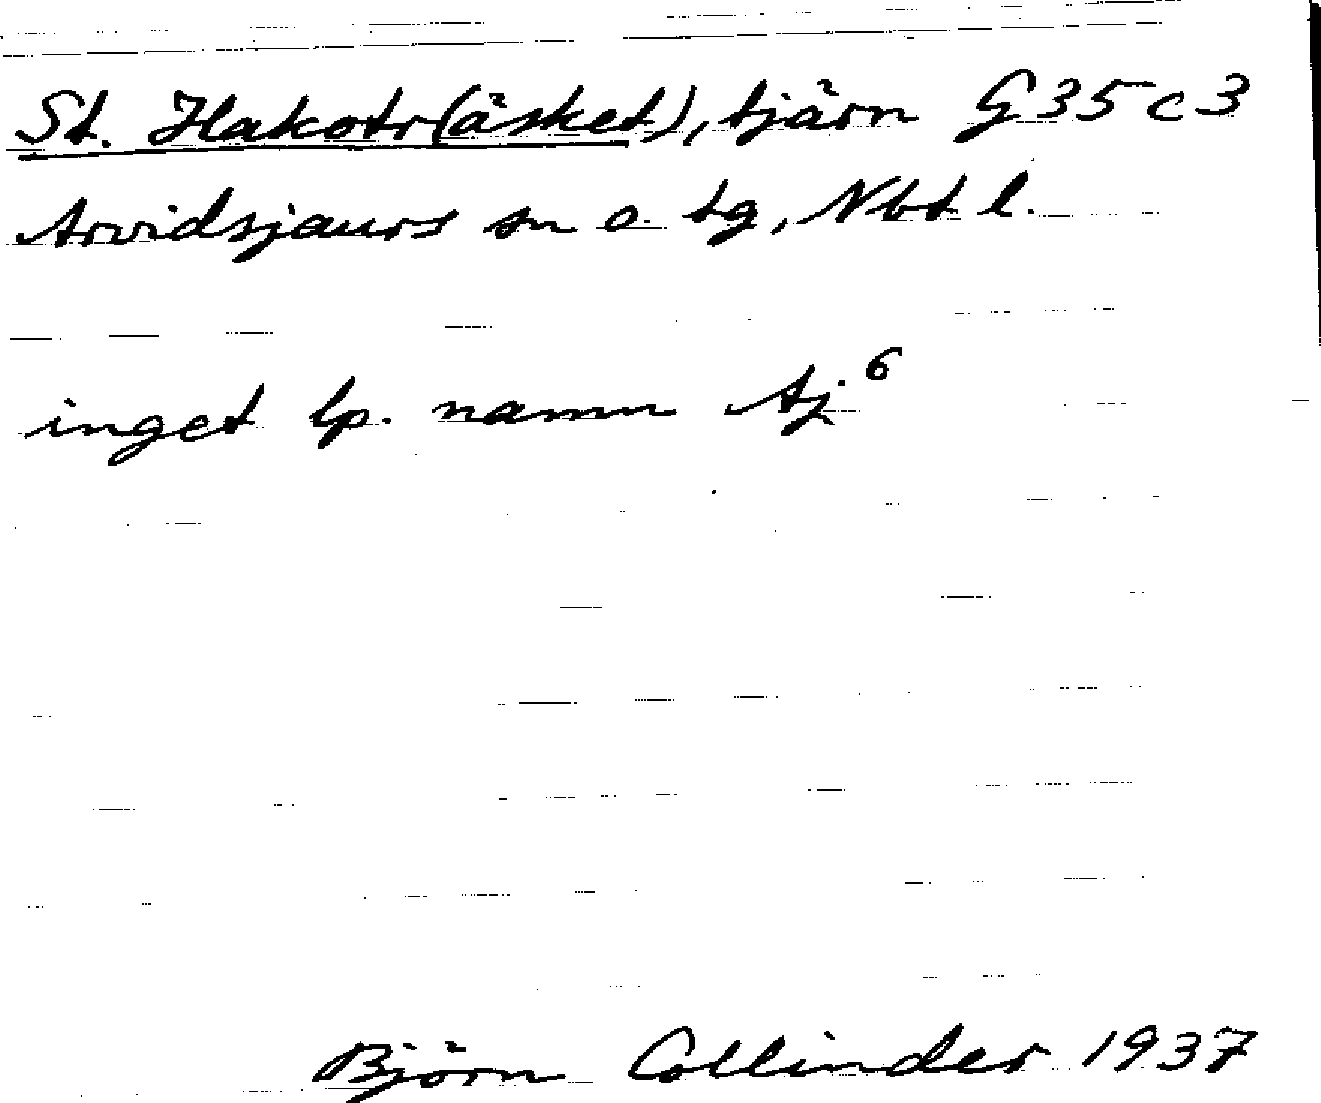 St. Hakotr(äsket), tjärn G 35 c 3
Arvidsjaurs sn o. tg, Nbt l.
inget lp. namn Aj.6
Björn Collinder 1937